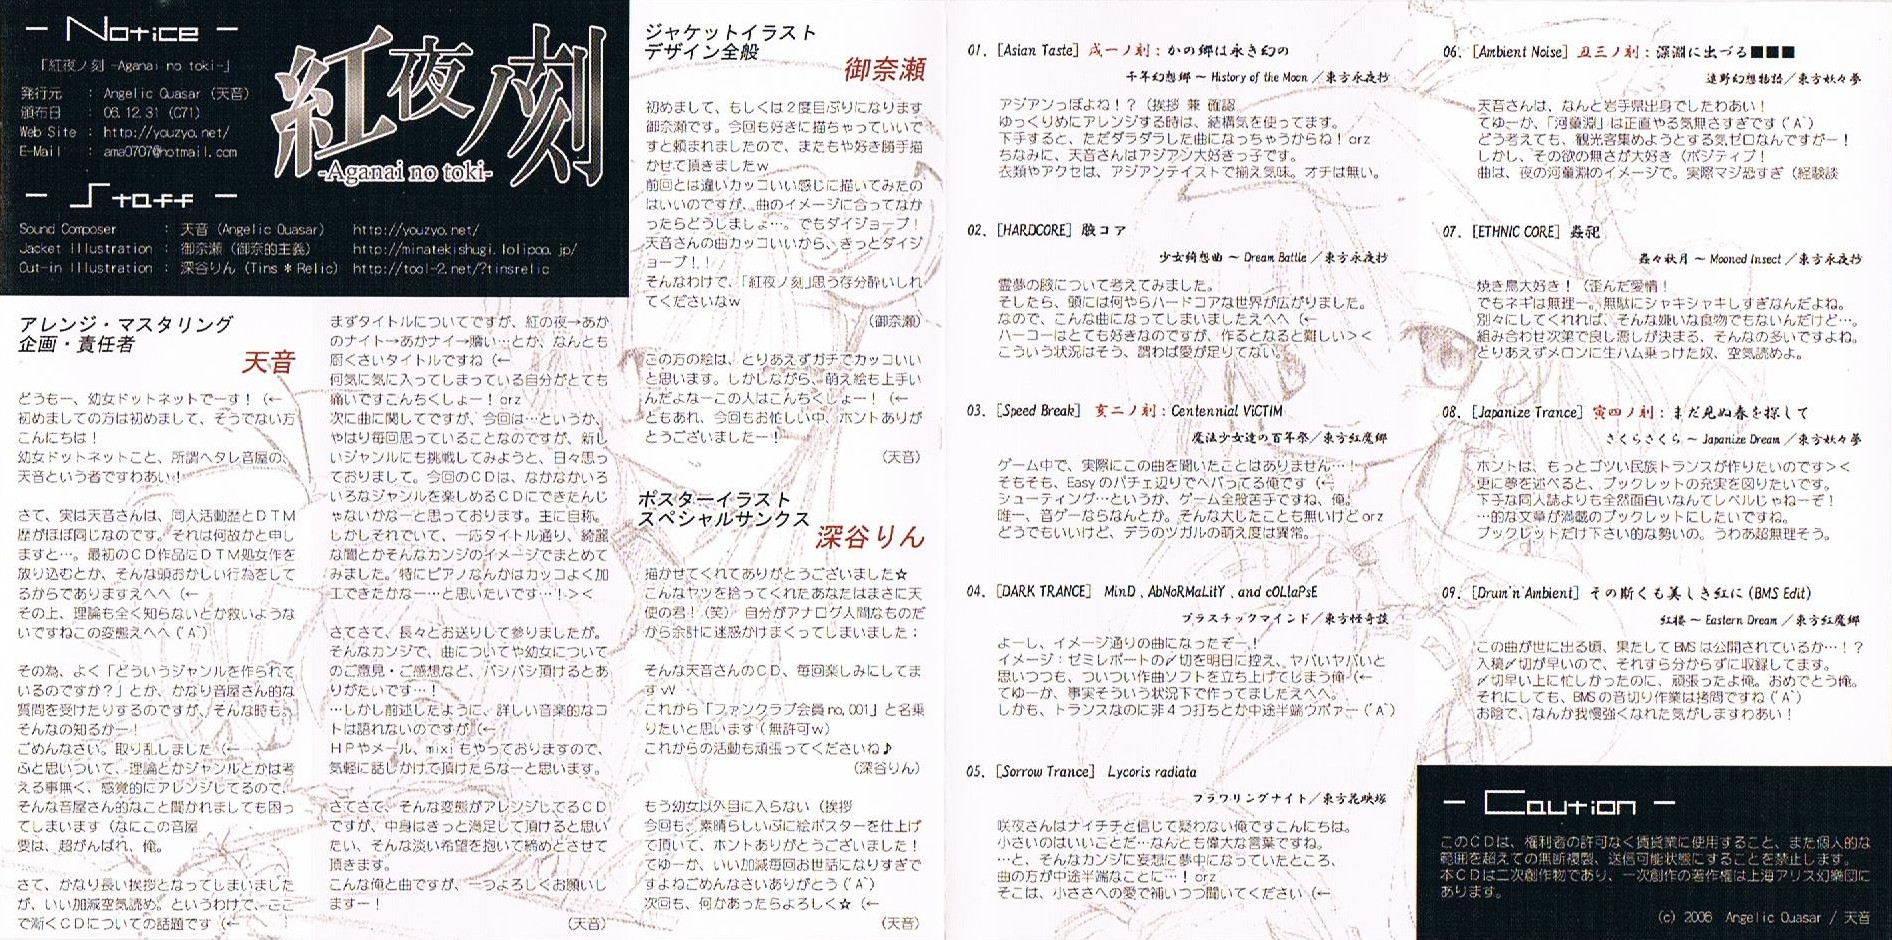 - Notice -
「紅夜ノ刻 -Aganai no toki-」
発行元 : Angelic Quasar (天音)
頒布日 : 06.12.31 (C71)
Web Site : http://youzyo.net/
E-Mail : ama0707@hotmail.com
- Staff -
Sound Composer : 天音 (Angelic Quasar) http://youzyo.net/
Jacket Illustration : 御奈瀬 (御奈的主義) http://minatekishugi.lolipop.jp/
Cut-in Illustration : 深谷りん (Tins＊Relic) http://tool-2.net/?tinsrelic
紅夜ノ刻
-Aganai no toki-
アレンジ・マスタリング
企画・責任者
天音
どうもー、幼女ドットネットでーす！（←
初めましての方は初めまして、そうでない方
こんにちは！
幼女ドットネットこと、所謂ヘタレ音屋の、
天音という者ですわあい！
さて、実は天音さんは、同人活動歴とＤＴＭ
歴がほぼ同じなのです。それは何故かと申し
ますと…。最初のＣＤ作品にＤＴＭ処女作を
放り込むとか、そんな頭おかしい行為をして
るからでありますえへへ（←
その上、理論も全く知らないとか救いような
いですねこの変態えへへ（'Ａ`）
その為、よく「どういうジャンルを作られて
いるのですか？」とか、かなり音屋さん的な
質問を受けたりするのですが、そんな時も。
そんなの知るかー！
ごめんなさい。取り乱しました（←
ふと思いついて、理論とかジャンルとかは考
える事無く、感覚的にアレンジしてるので、
そんな音屋さん的なこと聞かれましても困っ
てしまいます（なにこの音屋
要は、超がんばれ、俺。
さて、かなり長い挨拶となってしまいました
が、いい加減空気読め。というわけで、ここ
で漸くＣＤについての話題です（←
まずタイトルについてですが、紅の夜→あか
のナイト→あかナイ→贖い…とか、なんとも
厨くさいタイトルですね（←
何気に気に入ってしまっている自分がとても
痛いですこんちくしょー！orz
次に曲に関してですが、今回は…というか、
やはり毎回思っていることなのですが、新し
いジャンルにも挑戦してみようと、日々思っ
ておりまして。今回のＣＤは、なかなかいろ
いろなジャンルを楽しめるＣＤにできたんじ
ゃないかなーと思っております。主に自称。
しかしそれでいて、一応タイトル通り、綺麗
な闇とかそんなカンジのイメージでまとめて
みました。特にピアノなんかはカッコよく加
工できたかなー…と思いたいです…！><
さてさて、長々とお送りして参りましたが。
そんなカンジで、曲についてや幼女について
のご意見・ご感想など、バシバシ頂けるとあ
りがたいです…！
…しかし前述したように、詳しい音楽的なコ
トは語れないのですが（←
ＨＰやメール、mixiもやっておりますので、
気軽に話しかけて頂けたらなーと思います。
さてさて、そんな変態がアレンジしてるＣＤ
ですが、中身はきっと満足して頂けると思い
たい、そんな淡い希望を抱いて締めとさせて
頂きます。
こんな俺と曲ですが、一つよろしくお願いし
ますー！
（天音）
ジャケットイラスト
デザイン全般
御奈瀬
初めまして、もしくは２度目ぶりになります
御奈瀬です。今回も好きに描ちゃっていいで
すと頼まれましたので、またもや好き勝手描
かせて頂きましたｗ
前回とは違いカッコいい感じに描いてみたの
はいいのですが、曲のイメージに合ってなか
ったらどうしましょ…。でもダイジョーブ！
天音さんの曲カッコいいから、きっとダイジ
ョーブ！！
そんなわけで、「紅夜ノ刻」思う存分酔いしれ
てくださいなｗ
（御奈瀬）
この方の絵は、とりあえずガチでカッコいい
と思います。しかしながら、萌え絵も上手い
んだよなーこの人はこんちくしょー！（←
ともあれ、今回もお忙しい中、ホントありが
とうございましたー！
（天音）
ポスターイラスト
スペシャルサンクス
深谷りん
描かせてくれてありがとうございました☆
こんなヤツを拾ってくれたあなたはまさに天
使の君！（笑） 自分がアナログ人間なものだ
から余計に迷惑かけまくってしまいました；
そんな天音さんのＣＤ、毎回楽しみにしてま
すｗ
これから「ファンクラブ会員no.001」と名乗
りたいと思います（無許可ｗ）
これからの活動も頑張ってくださいね♪
（深谷りん）
もう幼女以外目に入らない（挨拶
今回も、素晴らしいぷに絵ポスターを仕上げ
て頂いて、ホントありがとうございました！
てゆーか、いい加減毎回お世話になりすぎで
すよねごめんなさいありがとう（'Ａ`）
次回も、何かあったらよろしく☆（←
（天音）
01. [Asian Taste] 戌一ノ刻：かの郷は永き幻の
千年幻想郷 ～ History of the Moon／東方永夜抄
アジアンっぽよね！？（挨拶 兼 確認
ゆっくりめにアレンジする時は、結構気を使ってます。
下手すると、ただダラダラした曲になっちゃうからね！orz
ちなみに、天音さんはアジアン大好きっ子です。
衣類やアクセは、アジアンテイストで揃え気味。オチは無い。
02. [HARDCORE] 腋コア
少女綺想曲 ～ Dream Battle／東方永夜抄
霊夢の腋について考えてみました。
そしたら、頭には何やらハードコアな世界が広がりました。
なので、こんな曲になってしまいましたえへへ（←
ハーコーはとても好きなのですが、作るとなると難しい><
こういう状況はそう、謂わば愛が足りてない。
03. [Speed Break] 亥二ノ刻：Centennial ViCTIM
魔法少女達の百年祭／東方紅魔郷
ゲーム中で、実際にこの曲を聞いたことはありません…！
そもそも、Easyのパチェ辺りでへばってる俺です（←
シューティング…というか、ゲーム全般苦手ですね、俺。
唯一、音ゲーならなんとか。そんな大したことも無いけどorz
どうでもいいけど、デラのツガルの萌え度は異常。
04. [DARK TRANCE] MinD、AbNoRMaLitY、and cOLlaPsE
プラスチックマインド／東方怪奇談
よーし、イメージ通りの曲になったぞー！
イメージ：ゼミレポートの〆切を明日に控え、ヤバいヤバいと
思いつつも、ついつい作曲ソフトを立ち上げてしまう俺（←
てゆーか、事実そういう状況下で作ってましたえへへ。
しかも、トランスなのに非４つ打ちとか中途半端ウボァー（'Ａ`）
05. [Sorrow Trance] Lycoris radiata
フラワリングナイト／東方花映塚
咲夜さんはナイチチと信じて疑わない俺ですこんにちは。
小さいのはいいことだ…なんとも偉大な言葉ですね。
…と、そんなカンジに妄想に夢中になっていたところ、
曲の方が中途半端なことに…！orz
そこは、小ささへの愛で補いつつ聞いてください（←
06. [Ambient Noise] 丑三ノ刻：深淵に出づる■■■
遠野幻想物語／東方妖々夢
天音さんは、なんと岩手県出身でしたわあい！
てゆーか、「河童淵」は正直やる気無さすぎです（'Ａ`）
どう考えても、観光客集めようとする気ゼロなんですがー！
しかし、その欲の無さが大好き（ポジティブ！
曲は、夜の河童淵のイメージで。実際マジ恐すぎ（経験談
07. [ETHNIC CORE] 蟲祀
蠢々秋月 ～ Mooned Insect／東方永夜抄
焼き鳥大好き！（歪んだ愛情！
でもネギは無理ー。無駄にシャキシャキしすぎなんだよね。
別々にしてくれれば、そんな嫌いな食物でもないんだけど…。
組み合わせ次第で良し悪しが決まる、そんなの多いですよね。
とりあえずメロンに生ハム乗っけた奴、空気読めよ。
08. [Japanize Trance] 寅四ノ刻：まだ見ぬ春を探して
さくらさくら ～ Japanize Dream／東方妖々夢
ホントは、もっとゴツい民族トランスが作りたいのです><
更に夢を述べると、ブックレットの充実を図りたいです。
下手な同人誌よりも全然面白いなんてレベルじゃねーぞ！
…的な文章が満載のブックレットにしたいですね。
ブックレットだけ下さい的な勢いの。うわあ超無理そう。
09. [Drum'n'Ambient] その斯くも美しき紅に (BMS Edit)
紅楼 ～ Eastern Dream／東方紅魔郷
この曲が世に出る頃、果たしてBMSは公開されているか…！？
入稿〆切が早いので、それすら分からずに収録してます。
〆切早い上に忙しかったのに、頑張ったよ俺。おめでとう俺。
それにしても、BMSの音切り作業は拷問ですね（'Ａ`）
お陰で、なんか我慢強くなれた気がしますわあい！
- Caution -
このＣＤは、権利者の許可なく賃貸業に使用すること、また個人的な
範囲を超えての無断複製、送信可能状態にすることを禁止します。
本ＣＤは二次創作物であり、一次創作の著作権は上海アリス幻樂団に
あります。
(c) 2006 Angelic Quasar / 天音